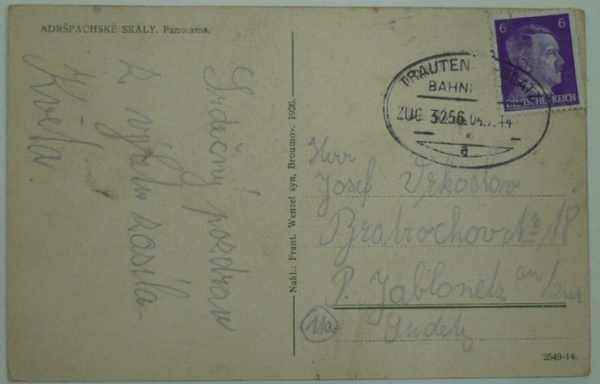 ADRŠPACHSKÉ SKÁLY. Panorama.
Srdečný pozdrav
z výletu zasílá
Květa
Nakl.: Frant. Wenzel syn, Broumov, 1920.
6 6
DEUTSCHES REICH
TRAUTEN
BAHN
ZUG 3256
a
Herr
Josef
Bratrochov No 18
P. Jablonetz an/
Sudetg.
11a
2549-14.